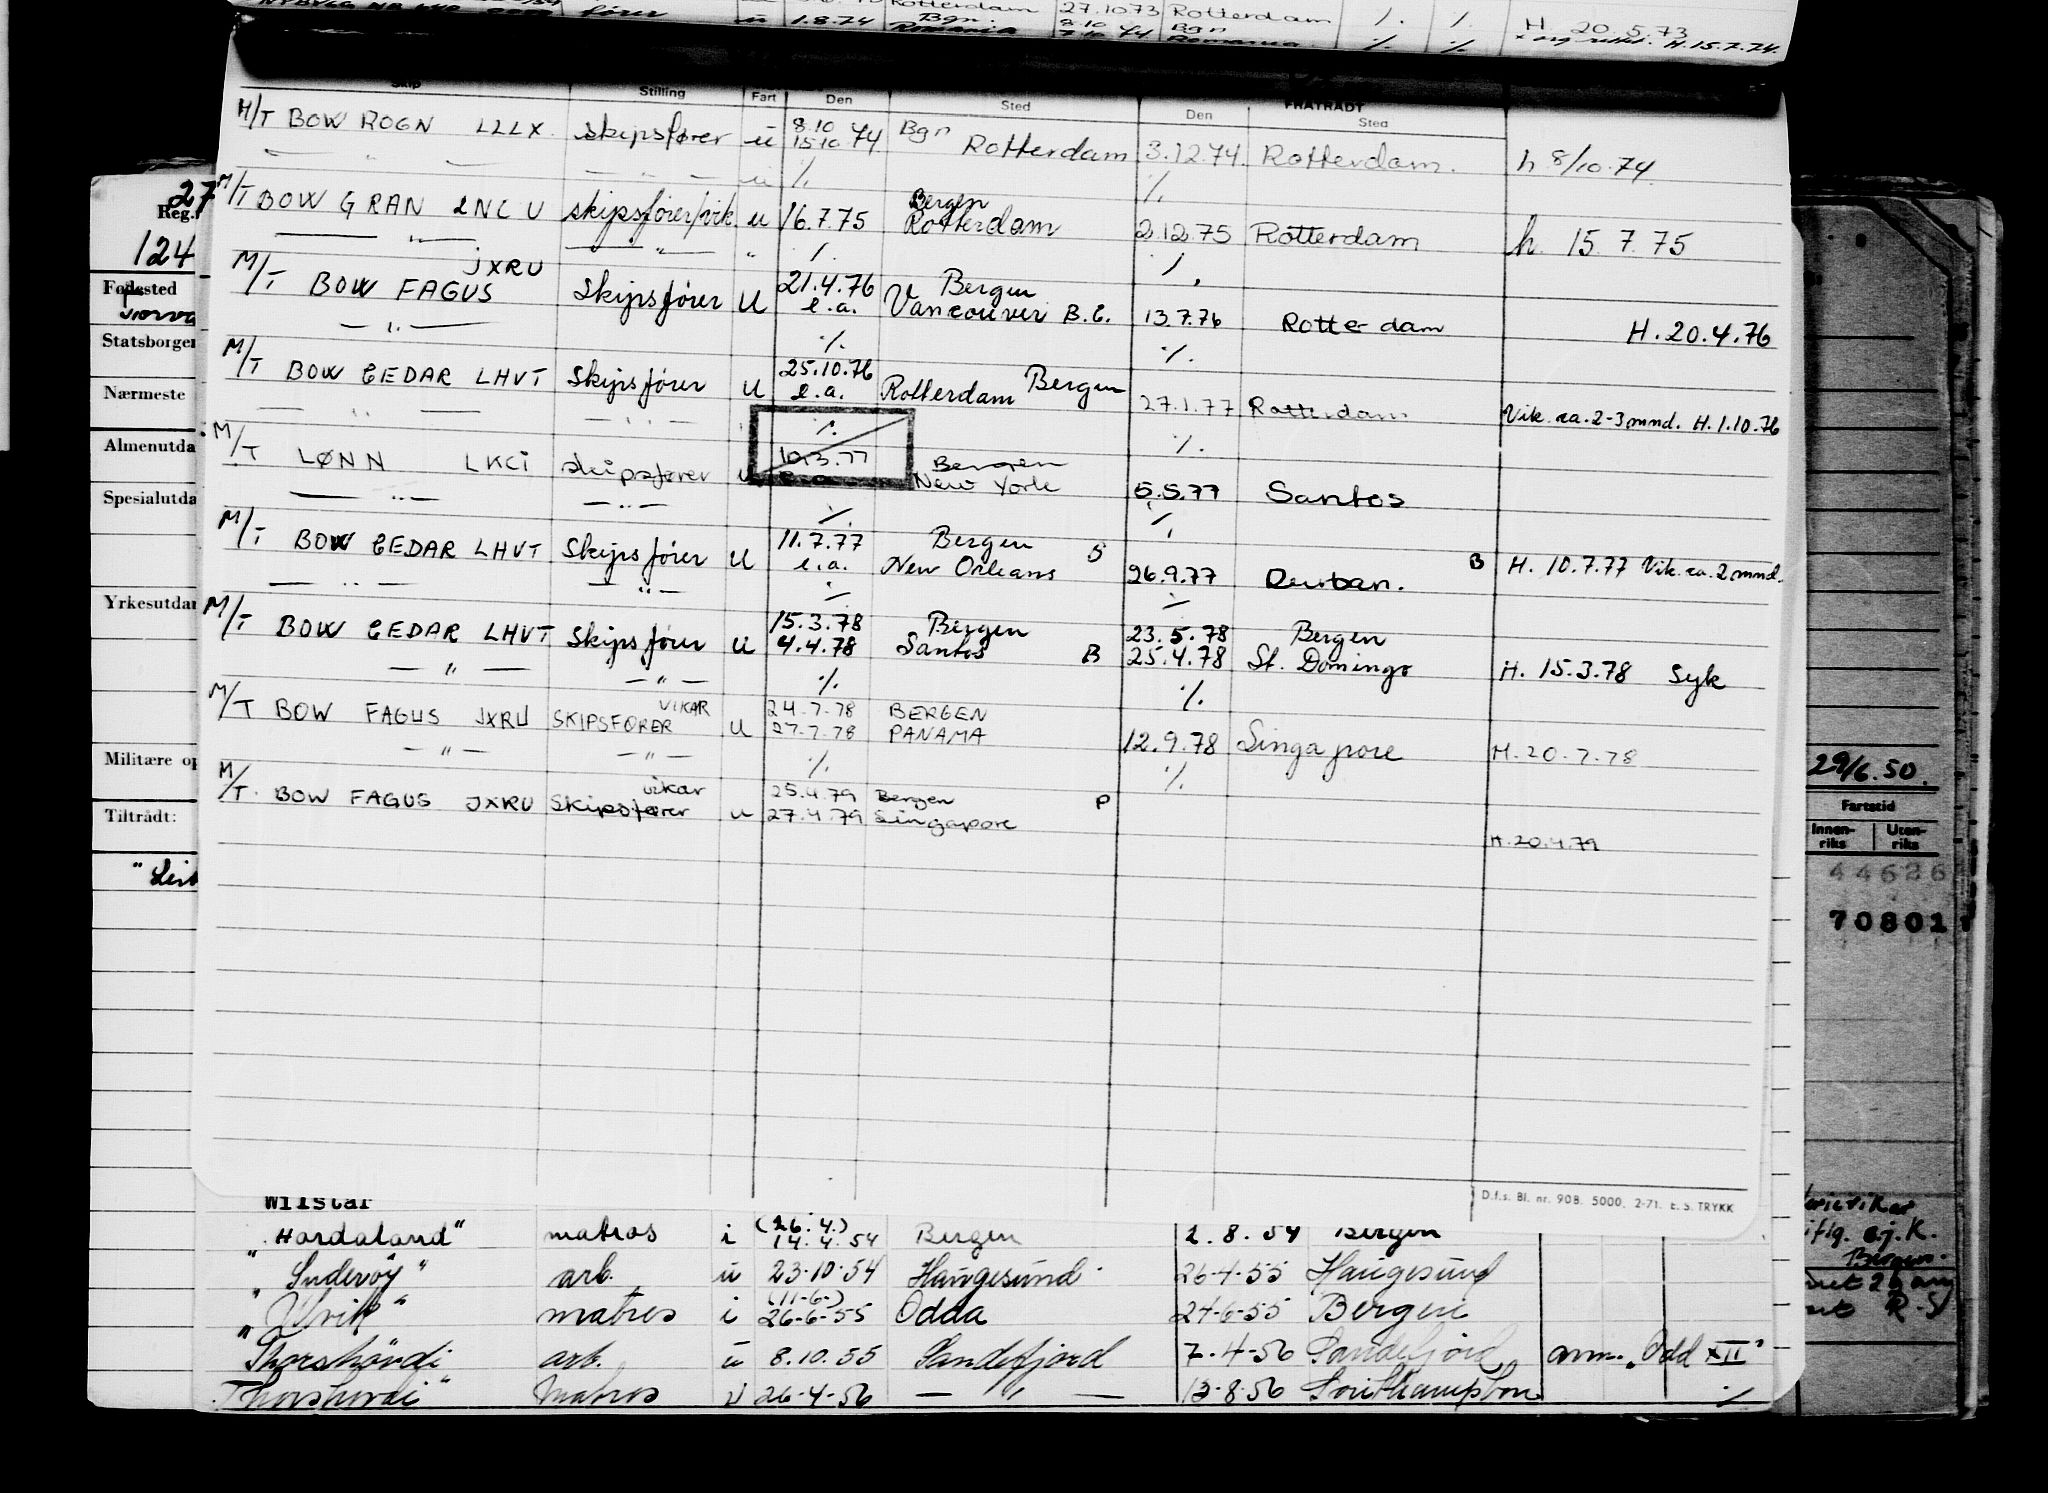 Rotterdam 27.10.73 Rotterdam ·/. ·/. H. 20.5.73
fører u 1.8.74 Bgn. 8.10 Bgn H. 15.7.74.
Skip Stilling Fart Den Sted Den FRATRÅDT Sted
M/T BOW ROGN LLLX. skipsfører u 8.10 15.10.74 Bgn Rotterdam 3.12.74. Rotterdam. h 8/10.74
— " — — " — u ·/. ·/.
M/T BOW GRAN LNCU skipsfører/vik. u 16.7.75 Bergen Rotterdam 2.12.75 Rotterdam h. 15.7.75
— " — — " — " ·/. ·/.
M/T BOW FAGUS JXRU Skipsfører u 21.4.76 e.a. Bergen Vancouver B.C. 13.7.76 Rotterdam H. 20.4.76
— " — ·/. ·/.
M/T BOW CEDAR LHVT Skipsfører u 25.10.76 e.a. Bergen Rotterdam 27.1.77 Rotterdam Vik. ca. 2-3 mnd. H. 1.10.76
— " — — " — ·/. ·/.
M/T LØNN LKCI skipsfører u 10.3.77 e.a. Bergen New York 5.5.77 Santos
— " — — " — ·/. ·/.
M/T BOW CEDAR LHVT Skipsfører u 11.7.77 e.a. Bergen New Orleans S 26.9.77 Durban. B H. 10.7.77 Vik. ca. 2 mnd.
— " — — " — ·/. ·/.
M/T BOW CEDAR LHVT Skipsfører u 15.3.78 4.4.78 Bergen Santos B 23.5.78 25.4.78 Bergen St. Domingo H. 15.3.78 Syk
— " — — " — ·/. ·/.
M/T BOW FAGUS JXRU SKIPSFØRER VIKAR u 24.7.78 27.7.78 BERGEN PANAMA 12.9.78 Singapore H. 20.7.78
— " — — " — ·/. ·/.
M/T. BOW FAGUS JXRU Skipsfører vikar u 25.4.79 27.4.79 Bergen Singapore P H. 20.4.79
D.f.s. Bl. nr. 908. 5000. 2-71. E.S. TRYKK
27
Reg.
124
Fødested
Statsborger
Nærmeste
Almenutda
Spesialutda
Yrkesutdan
Militære op
Tiltrådt:
29/6.50.
Fartstid
Innenriks Utenriks
44626
70801
Bergen.
Wilstar
"Hordaland" matros i (26.4.) 14.4.54 Bergen 2.8.54 Bergen
"Suderöy" arb. u 23.10.54 Haugesund 26-4-55 Haugesund
"Ulvik" matros i (11-6-) 26-6-55 Odda 24-6-55 Bergen
"Thorshövdi arb. u 8.10.55 Sandefjord 7.4-56 Sandefjord anm. "Odd XII"
Thorshovdi" Matros u 26-4-56 — " — 13-8-56 Southampton ·/.